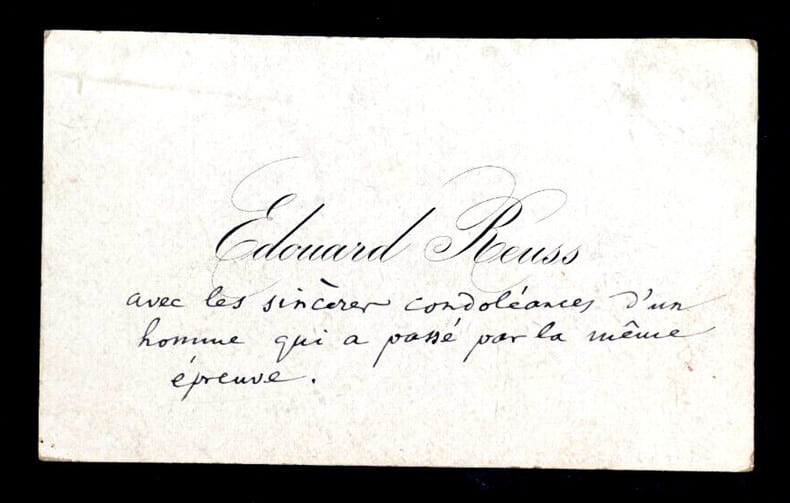 Edouard Reuss
avec les sincères condoléances d'un
homme qui a passé par la même
épreuve.